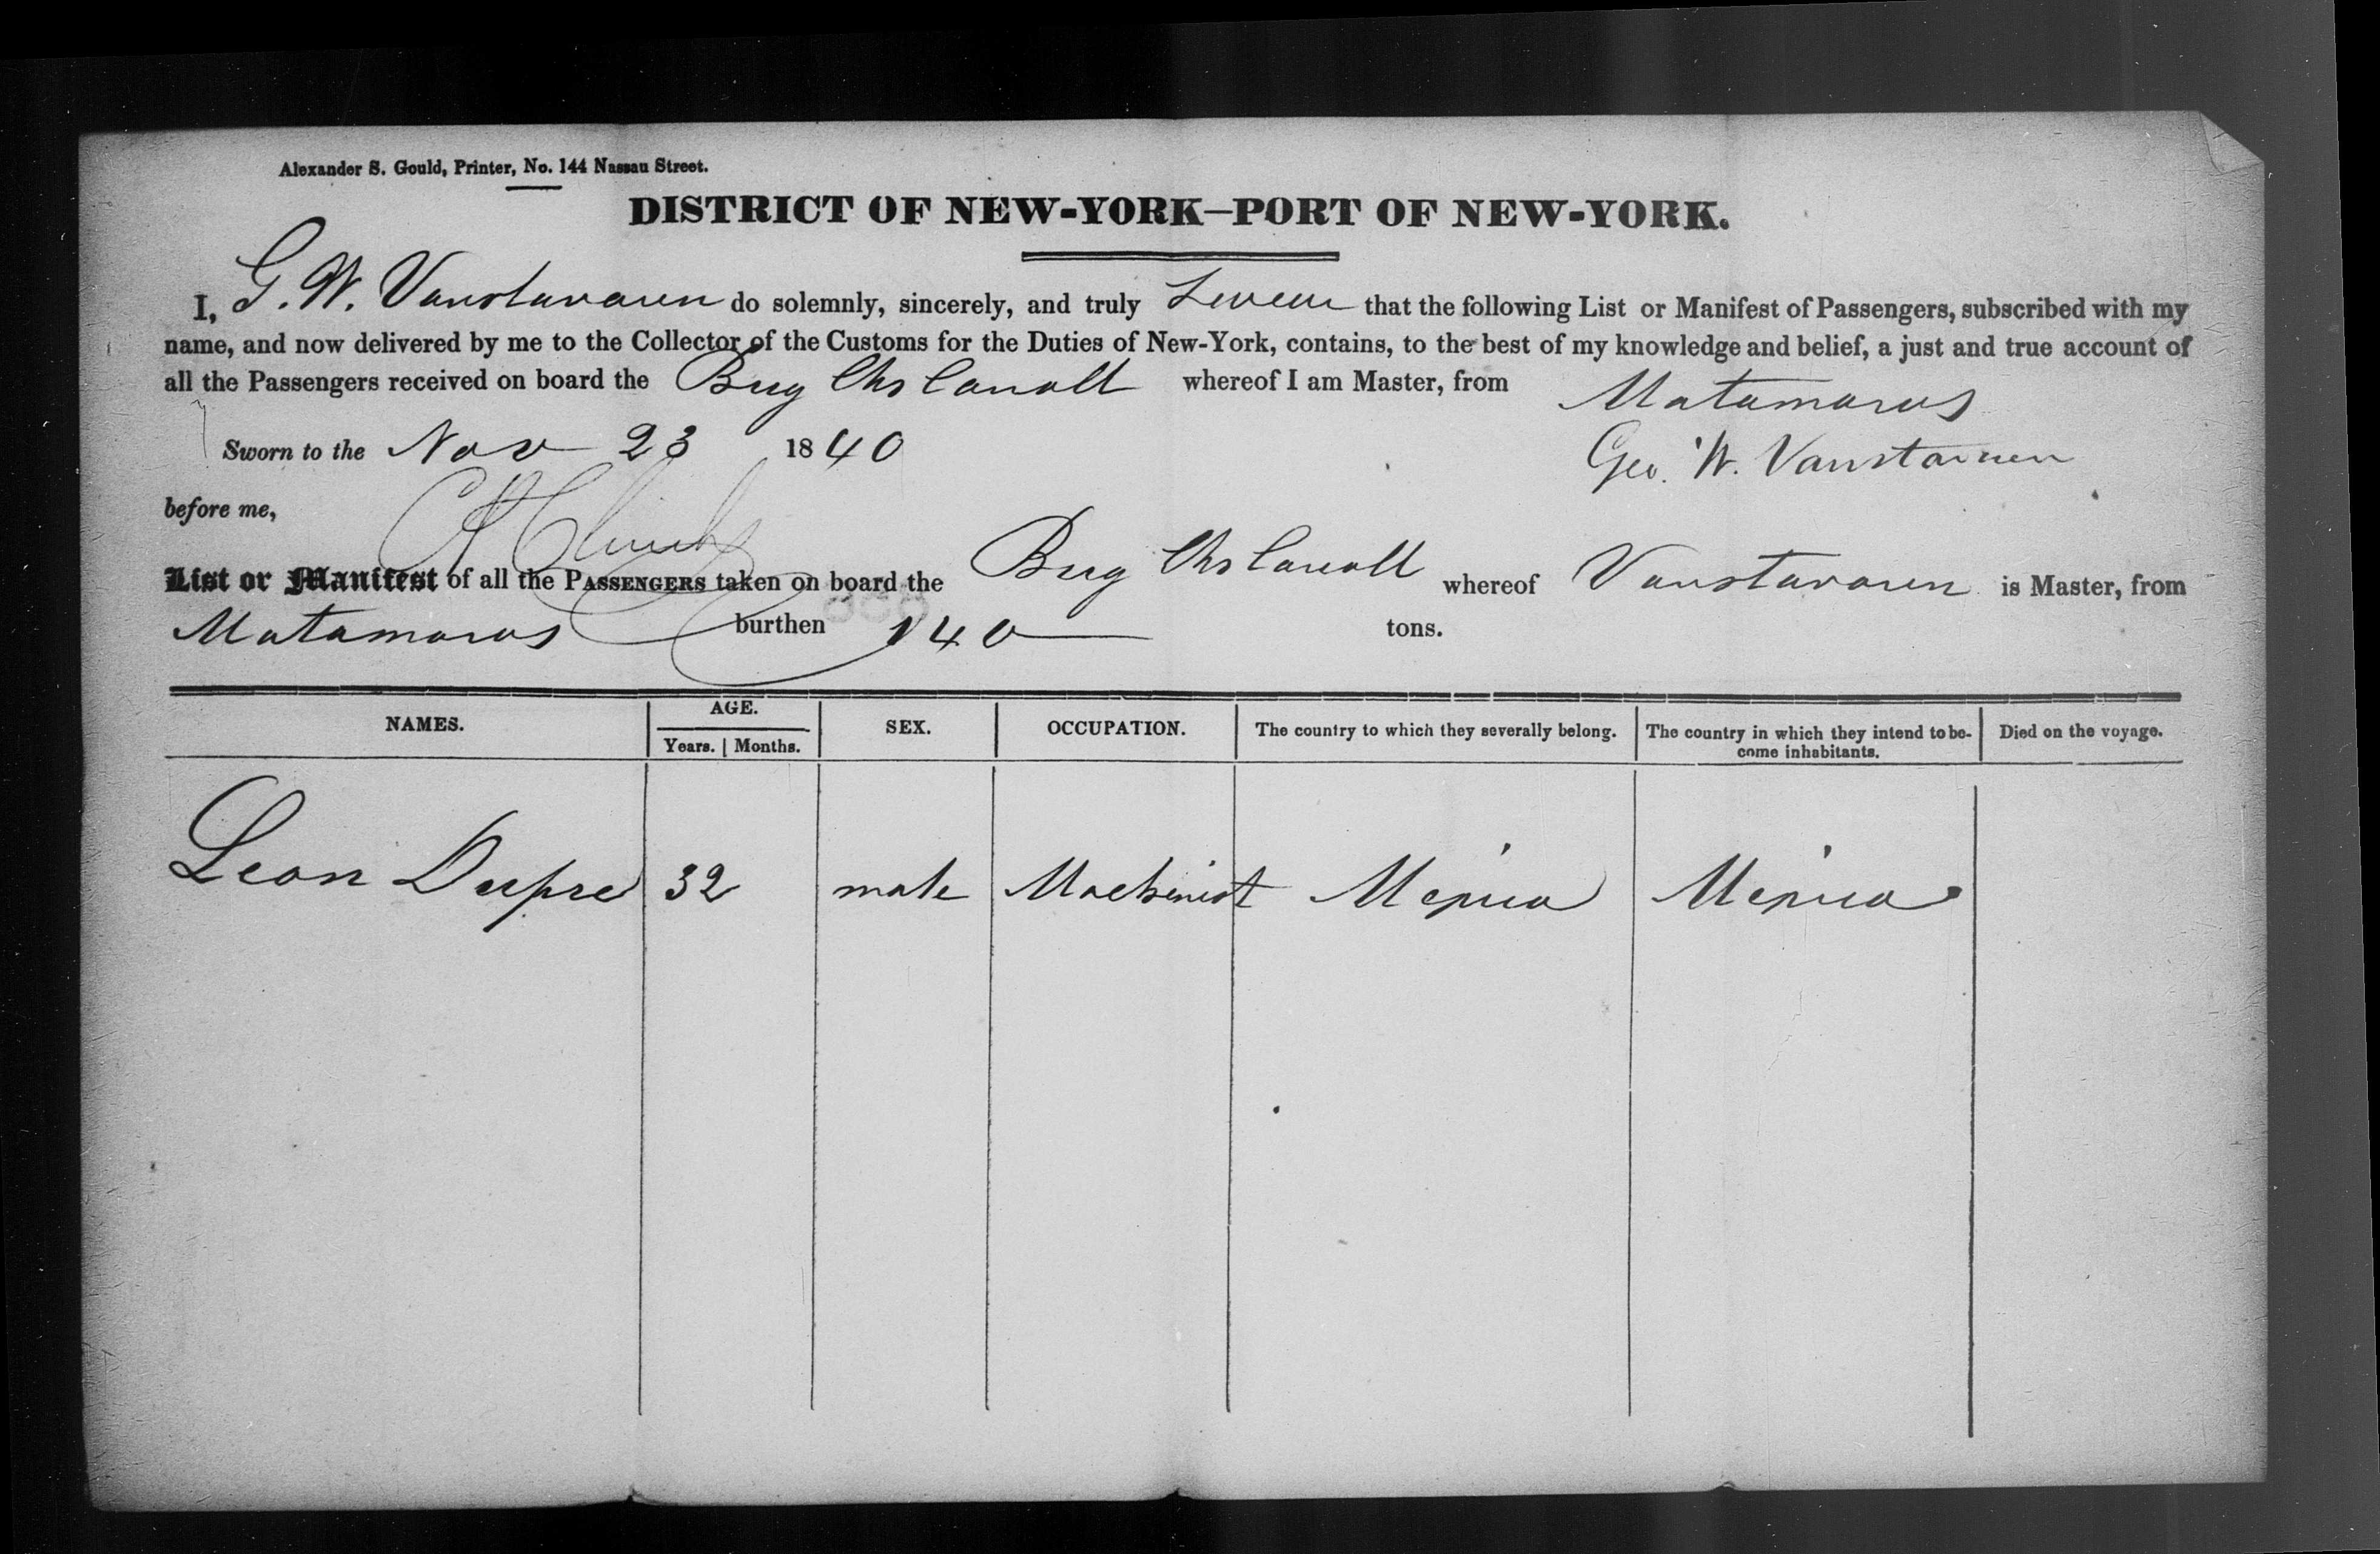 Alexander S. Gould, Printer, No. 144 Nassau Street.
DISTRICT OF NEW-YORK—PORT OF NEW-YORK.
I, G. W. Vanstavaren do solemnly, sincerely, and truly Swear that the following List or Manifest of Passengers, subscribed with my
name, and now delivered by me to the Collector of the Customs for the Duties of New-York, contains, to the best of my knowledge and belief, a just and true account of
all the Passengers received on board the Brig Chs Carroll whereof I am Master, from Matamoras
Sworn to the Nov 23 1840
Geo. W. Vanstavaren
before me,
List or Manifest of all the PASSENGERS taken on board the Brig Chs Carroll whereof Vanstavaren is Master, from
Matamoras burthen 140 tons.
NAMES. AGE. Years. Months. SEX. OCCUPATION. The country to which they severally belong. The country in which they intend to be-come inhabitants. Died on the voyage.
Leon Dupre 32 male Machinist Mexico Mexico